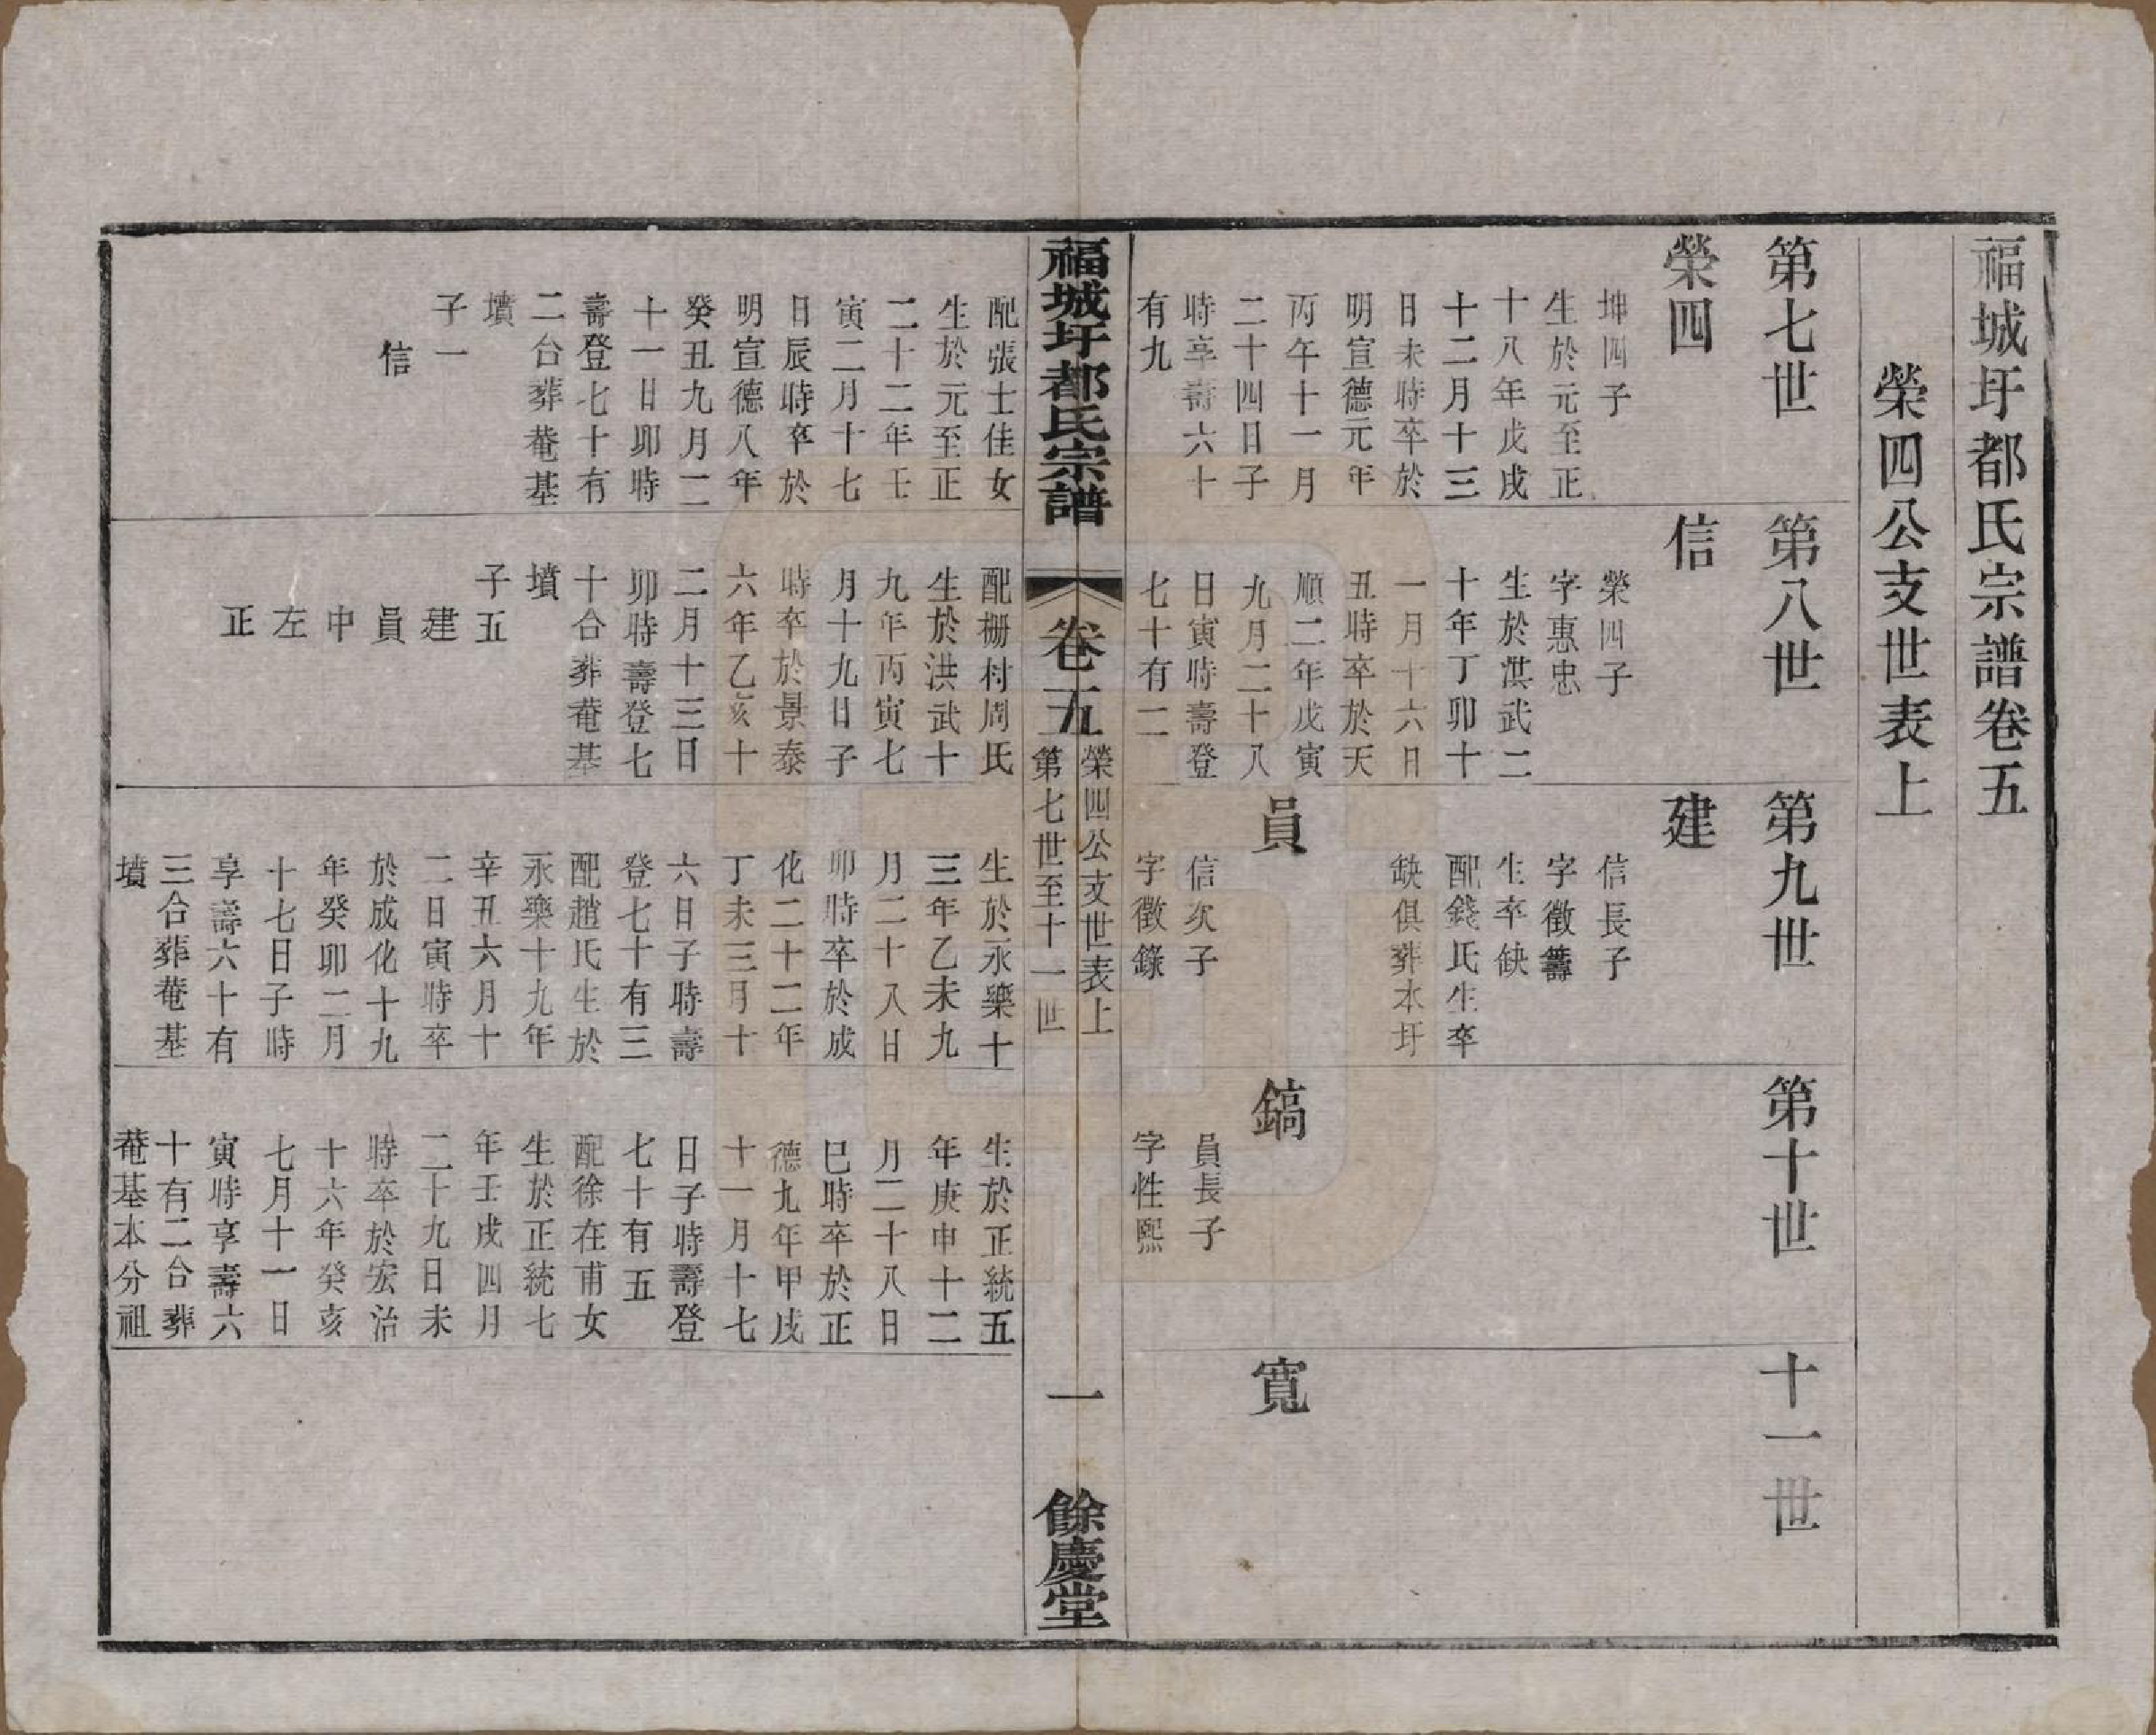 福城圩都氏宗譜卷五
榮四公支世表上
第七世
榮四
坤四子
生於元至正
十八年戊戌
十二月十三
日未時卒於
明宣德元年
丙午十一月
二十四日子
時享壽六十
有九
第八世
信
榮四子
字惠忠
生於洪武二
十年丁卯十
一月十六日
丑時卒於天
順二年戊寅
九月二十八
日寅時壽登
七十有二
第九世
建
信長子
字徵籌
生卒缺
配錢氏生卒
缺俱葬本圩
員
信次子
字徵錄
第十世
鎬
員長子
字性熙
十一世
寬
福城圩都氏宗譜
卷五
榮四公支世表上
第七世至十一世
一
餘慶堂
配張士佳女
生於元至正
二十二年壬
寅二月十七
日辰時卒於
明宣德八年
癸丑九月二
十一日卯時
壽登七十有
二合葬菴基
墳
子一
信
配柵村周氏
生於洪武十
九年丙寅七
月十九日子
時卒於景泰
六年乙亥十
二月十三日
卯時壽登七
十合葬菴基
墳
子五
建
員
中
左
正
生於永樂十
三年乙未九
月二十八日
卯時卒於成
化二十二年
丁未三月十
六日子時壽
登七十有三
配趙氏生於
永樂十九年
辛丑六月十
二日寅時卒
於成化十九
年癸卯二月
十七日子時
享壽六十有
三合葬菴基
墳
生於正統五
年庚申十二
月二十八日
巳時卒於正
德九年甲戌
十一月十七
日子時壽登
七十有五
配徐在甫女
生於正統七
年壬戌四月
二十九日未
時卒於宏治
十六年癸亥
七月十一日
寅時享壽六
十有二合葬
菴基本分祖